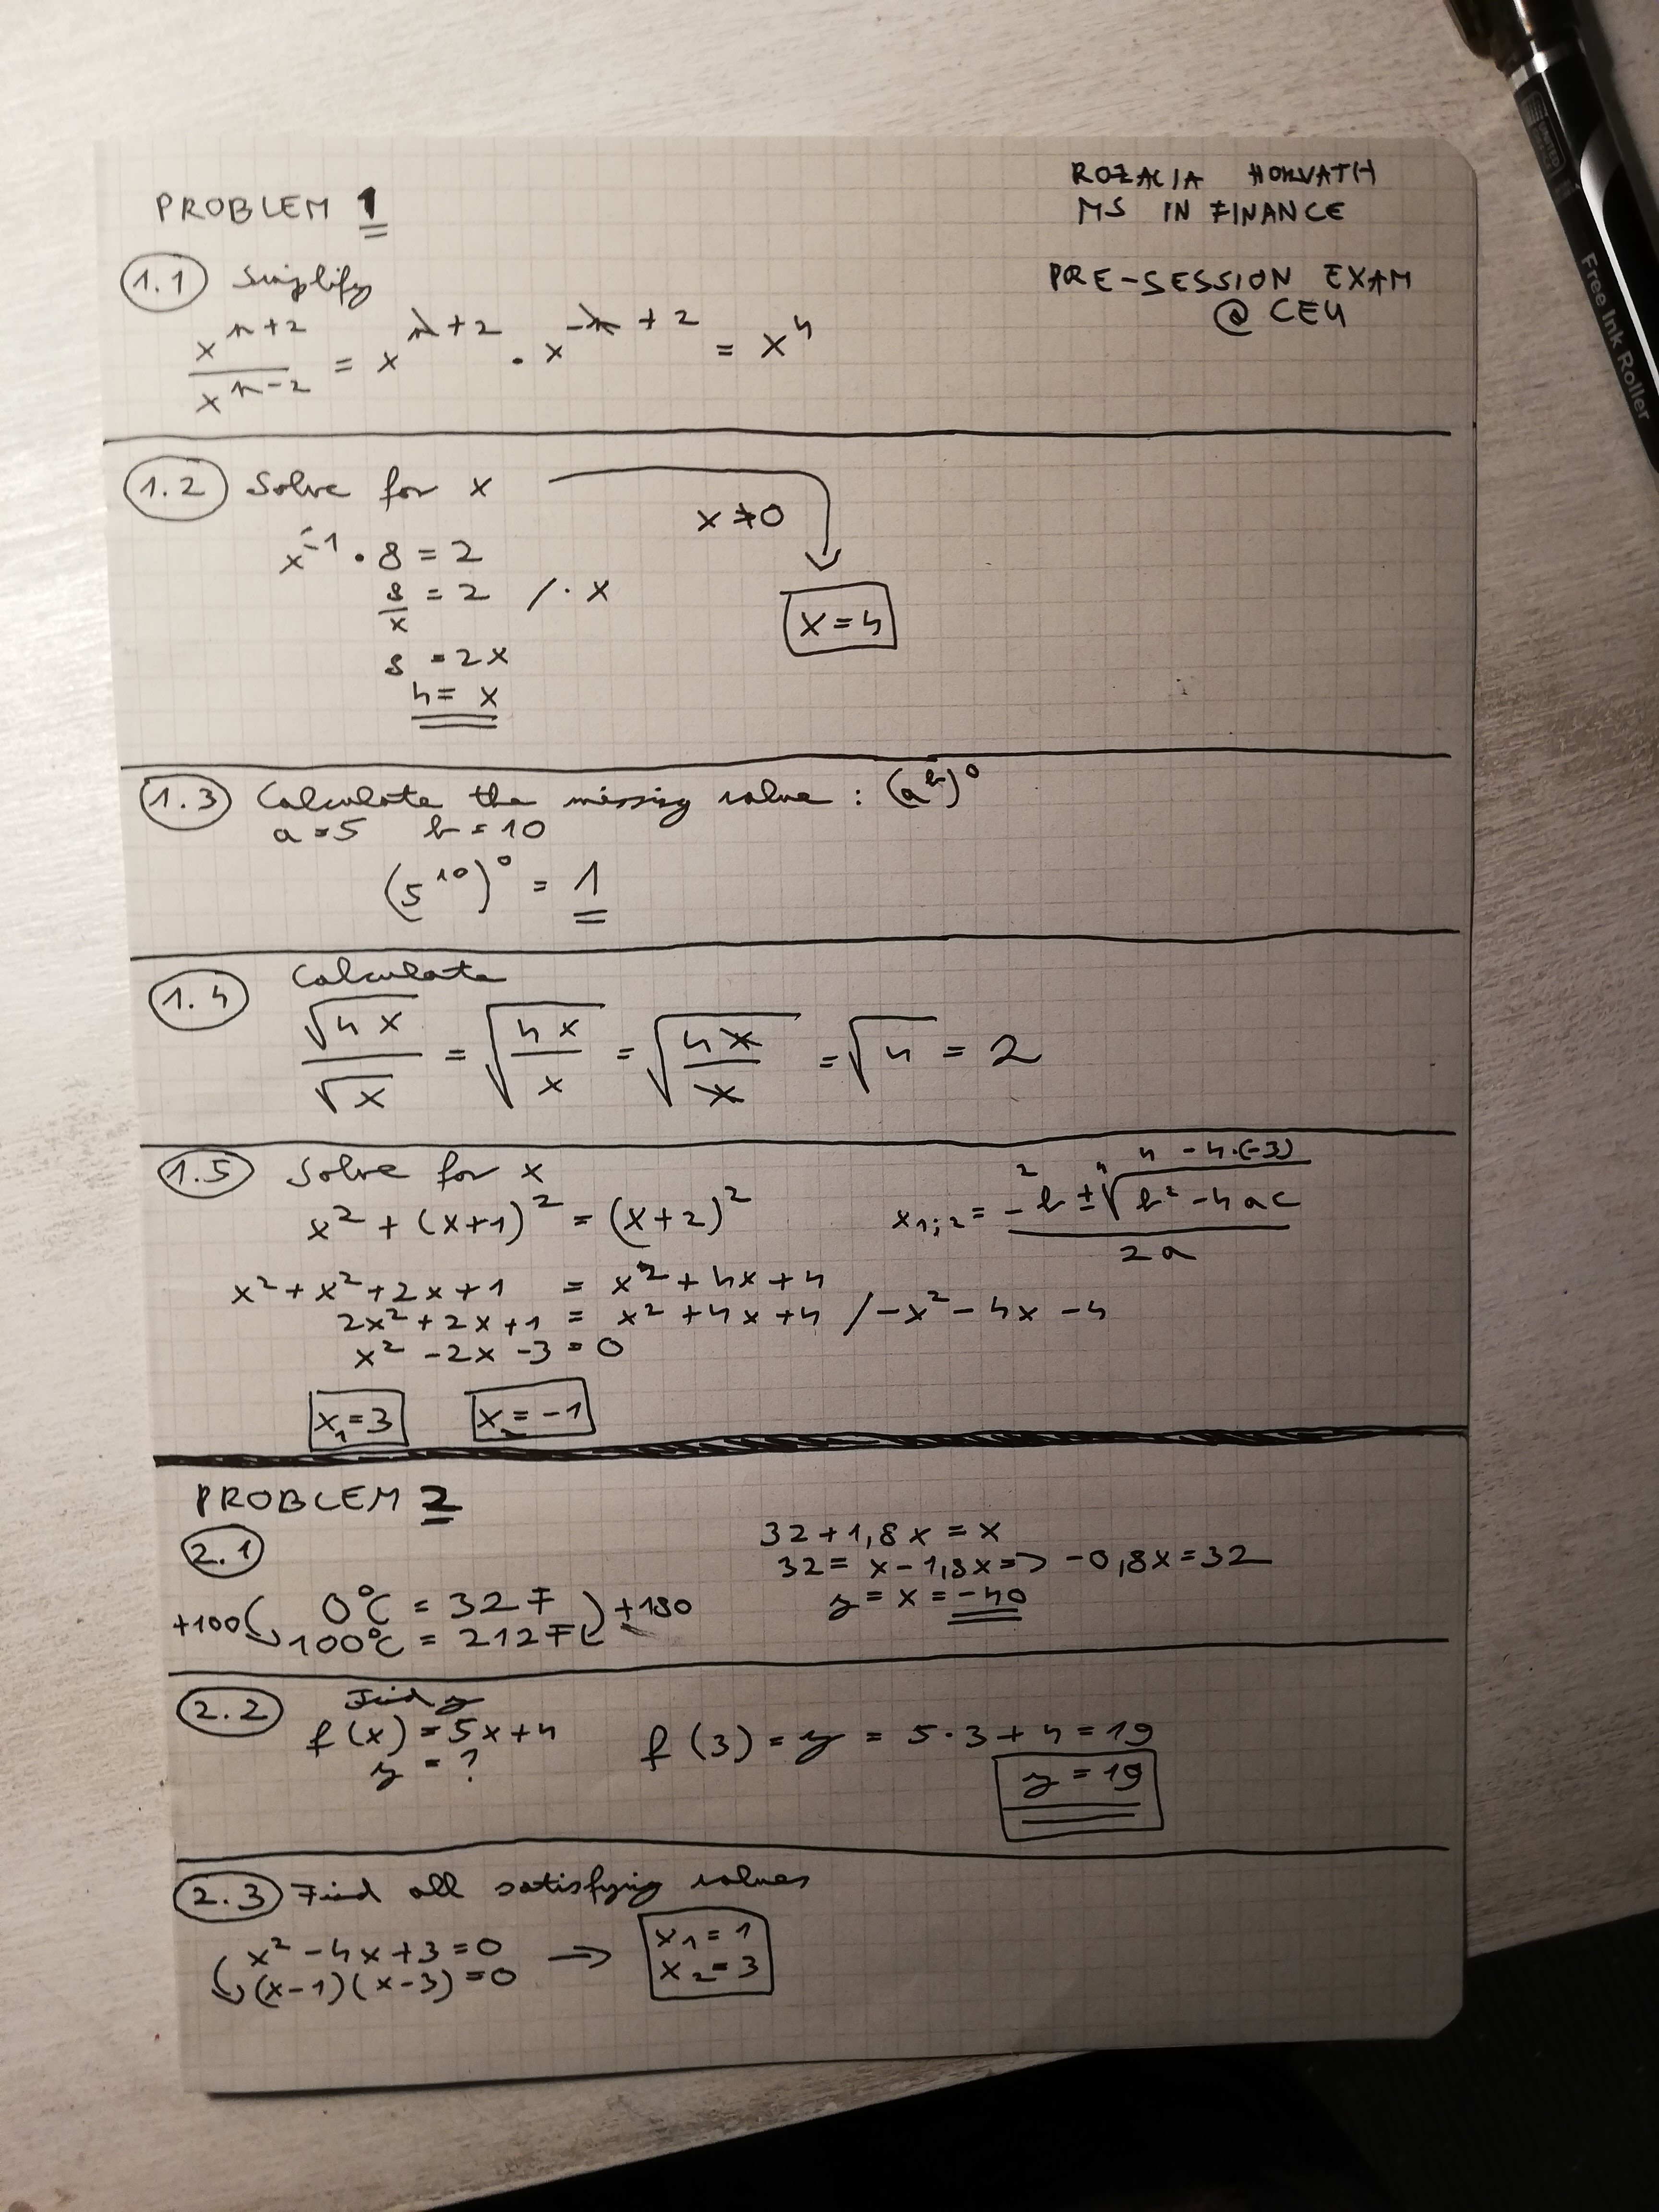 PROBLEM 1
ROZALIA HORVATH
MS IN FINANCE
PRE-SESSION EXAM
@ CEU
1.1 Simplify
x^(n+2) / x^(n-2) = x^(n+2) · x^(-n+2) = x^4
1.2 Solve for x
x ≠ 0
x^-1 · 8 = 2
8/x = 2 / · x
8 = 2x
4 = x
x = 4
1.3 Calculate the missing value : (a^b)^0
a = 5 b = 10
(5^10)^0 = 1
1.4 Calculate
√4x / √x = √(4x/x) = √(4x/x) = √4 = 2
1.5 Solve for x
x² + (x+1)² = (x+2)²
2 4 4 - 4·(-3)
x1;2 = (-b ± √(b² - 4ac)) / 2a
x² + x² + 2x + 1 = x² + 4x + 4
2x² + 2x + 1 = x² + 4x + 4 / -x² - 4x - 4
x² - 2x - 3 = 0
x1 = 3 x2 = -1
PROBLEM 2
2.1
32 + 1,8x = x
32 = x - 1,8x => -0,8x = 32
y = x = -40
+100 0°C = 32 F +180
100°C = 212 F
2.2 Find y
f(x) = 5x + 4
y = ?
f(3) = y = 5·3 + 4 = 19
y = 19
2.3 Find all satisfying values
x² - 4x + 3 = 0
(x-1)(x-3) = 0
x1 = 1
x2 = 3
UNITED
Free Ink Roller